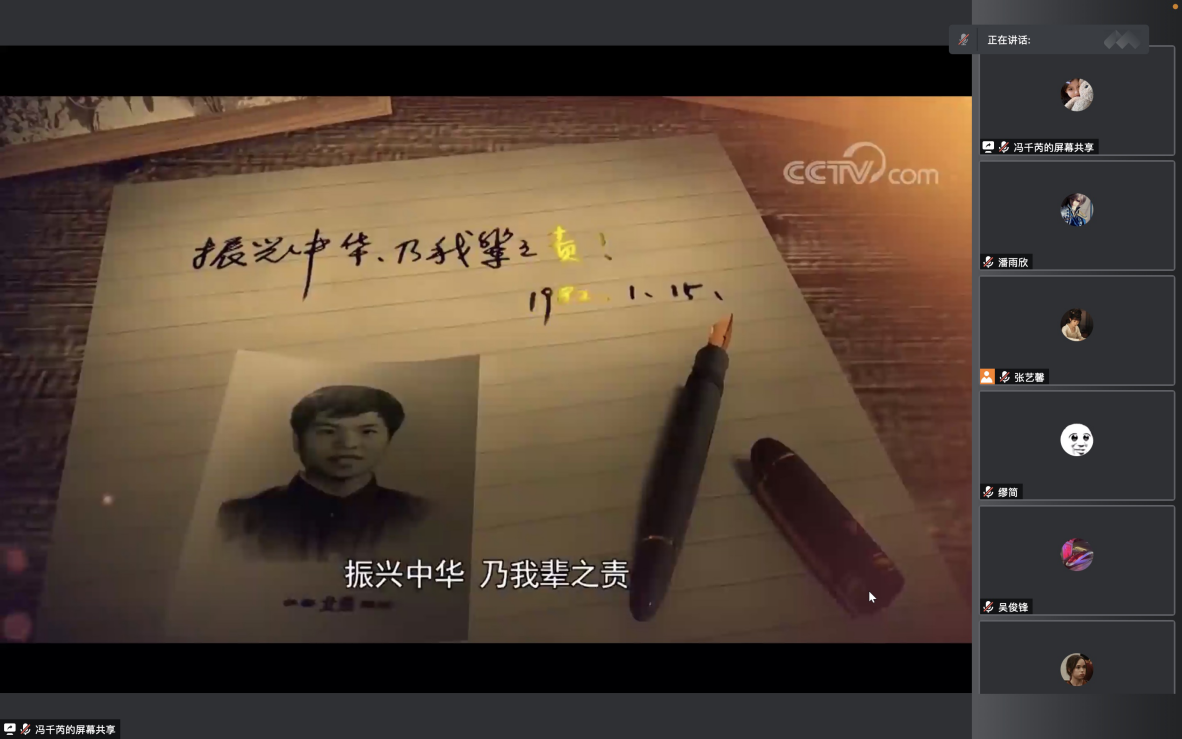 正在讲话:
CCTV.com
振兴中华、乃我辈之责!
1982.1.15、
振兴中华 乃我辈之责
冯千芮的屏幕共享
潘雨欣
张艺馨
缪简
吴俊锋
冯千芮的屏幕共享